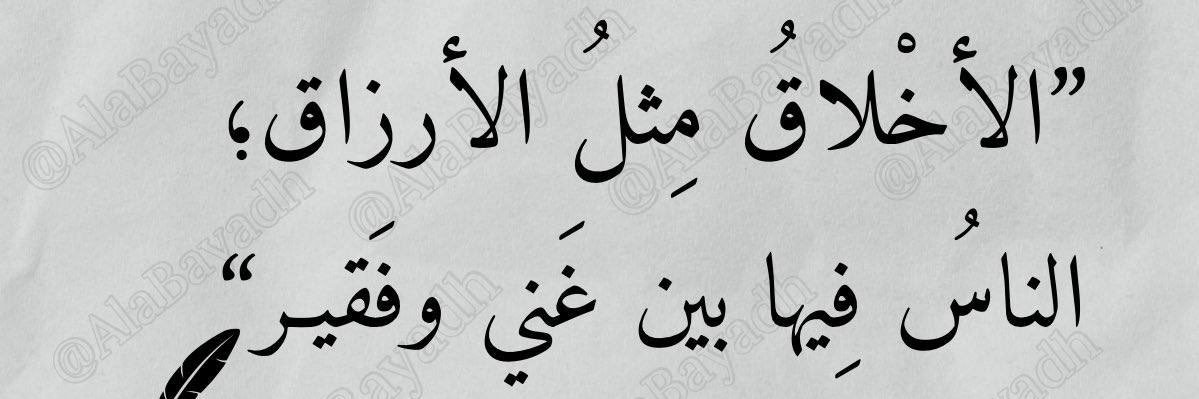 ”الأخْلاقُ مِثلُ الأرزاق؛
الناسُ فِيها بين غَني وفَقيـر“
@AlaBayadh
@AlaBayadh
@AlaBayadh
@AlaBayadh
@AlaBayadh